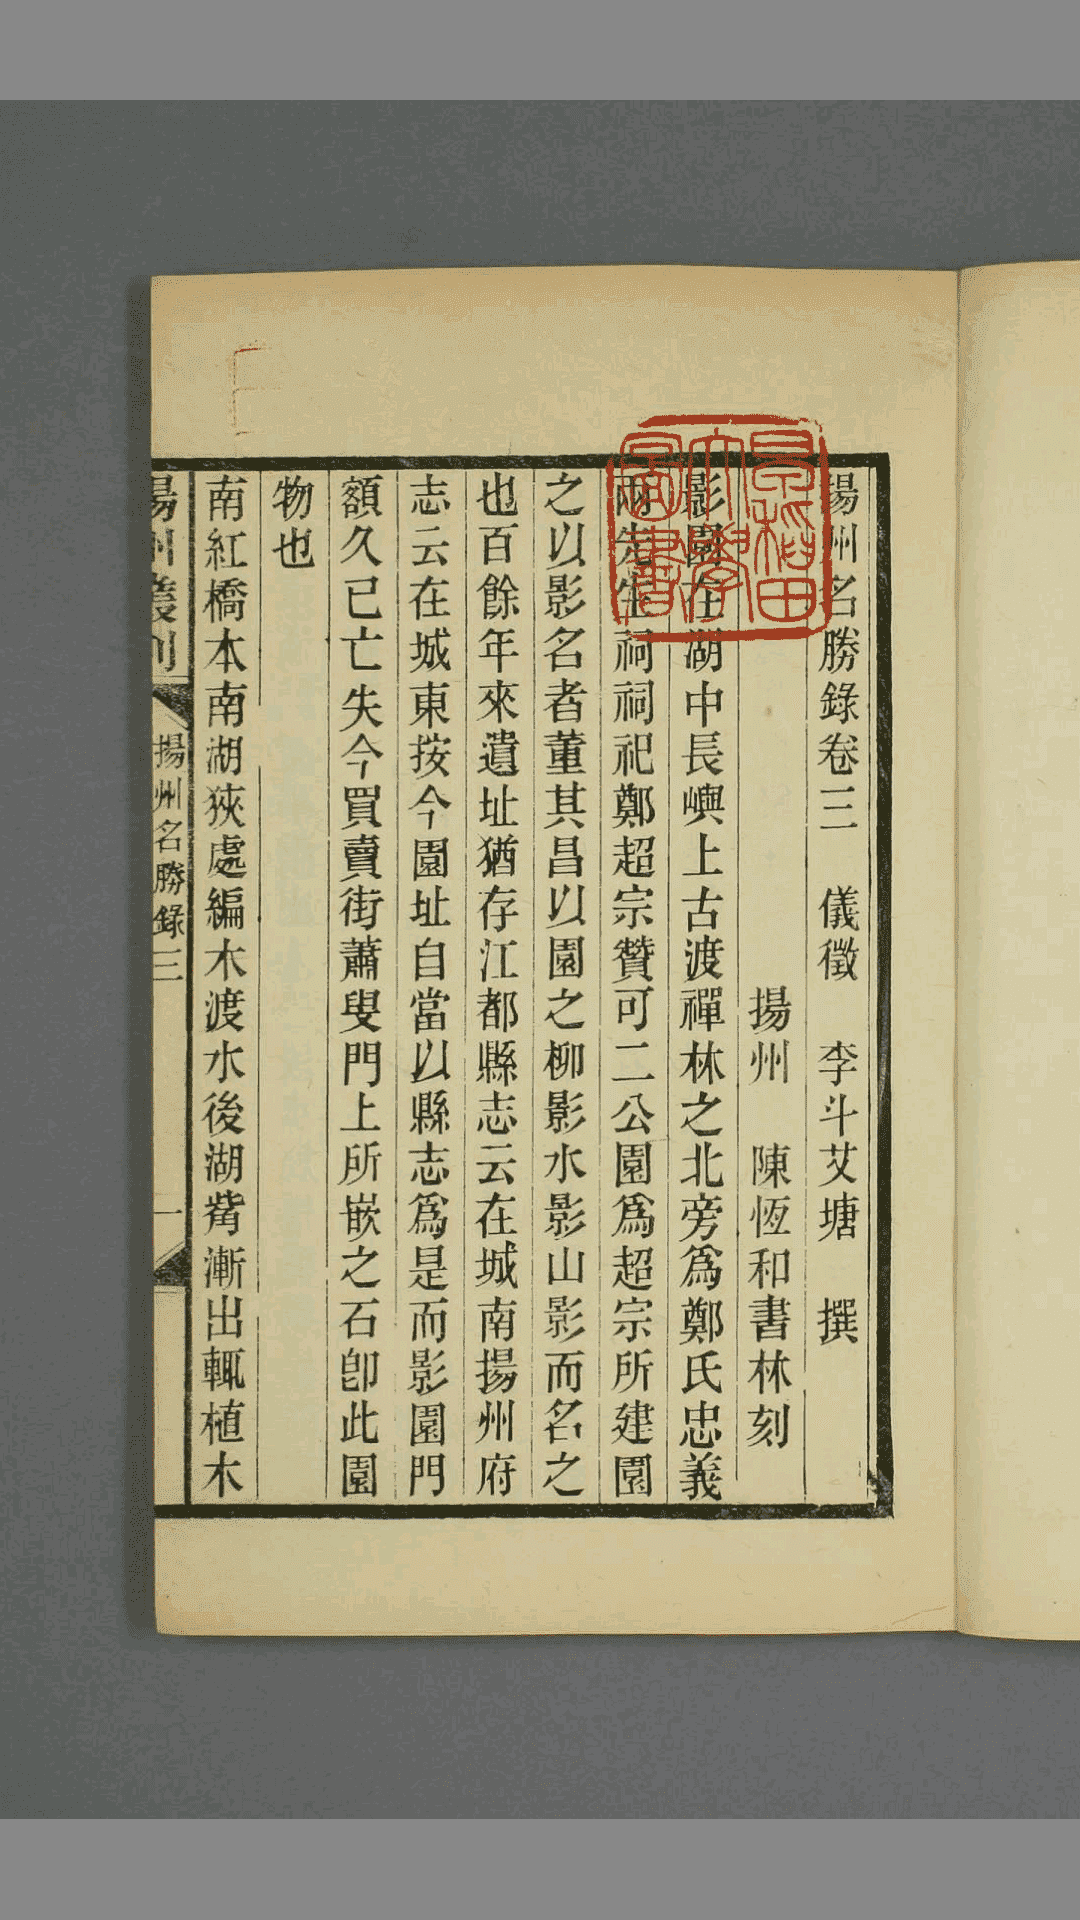 揚州名勝錄卷三　儀徵　李斗艾塘　撰
揚州　陳恆和書林刻
影園在湖中長嶼上古渡禪林之北旁爲鄭氏忠義
兩先生祠祠祀鄭超宗贊可二公園爲超宗所建園
之以影名者董其昌以園之柳影水影山影而名之
也百餘年來遺址猶存江都縣志云在城南揚州府
志云在城東按今園址自當以縣志爲是而影園門
額久已亡失今買賣街蕭叟門上所嵌之石卽此園
物也
南紅橋本南湖狹處編木渡水後湖觜漸出輒植木
揚州叢刻
揚州名勝錄三
一
早稻田
大學
圖書